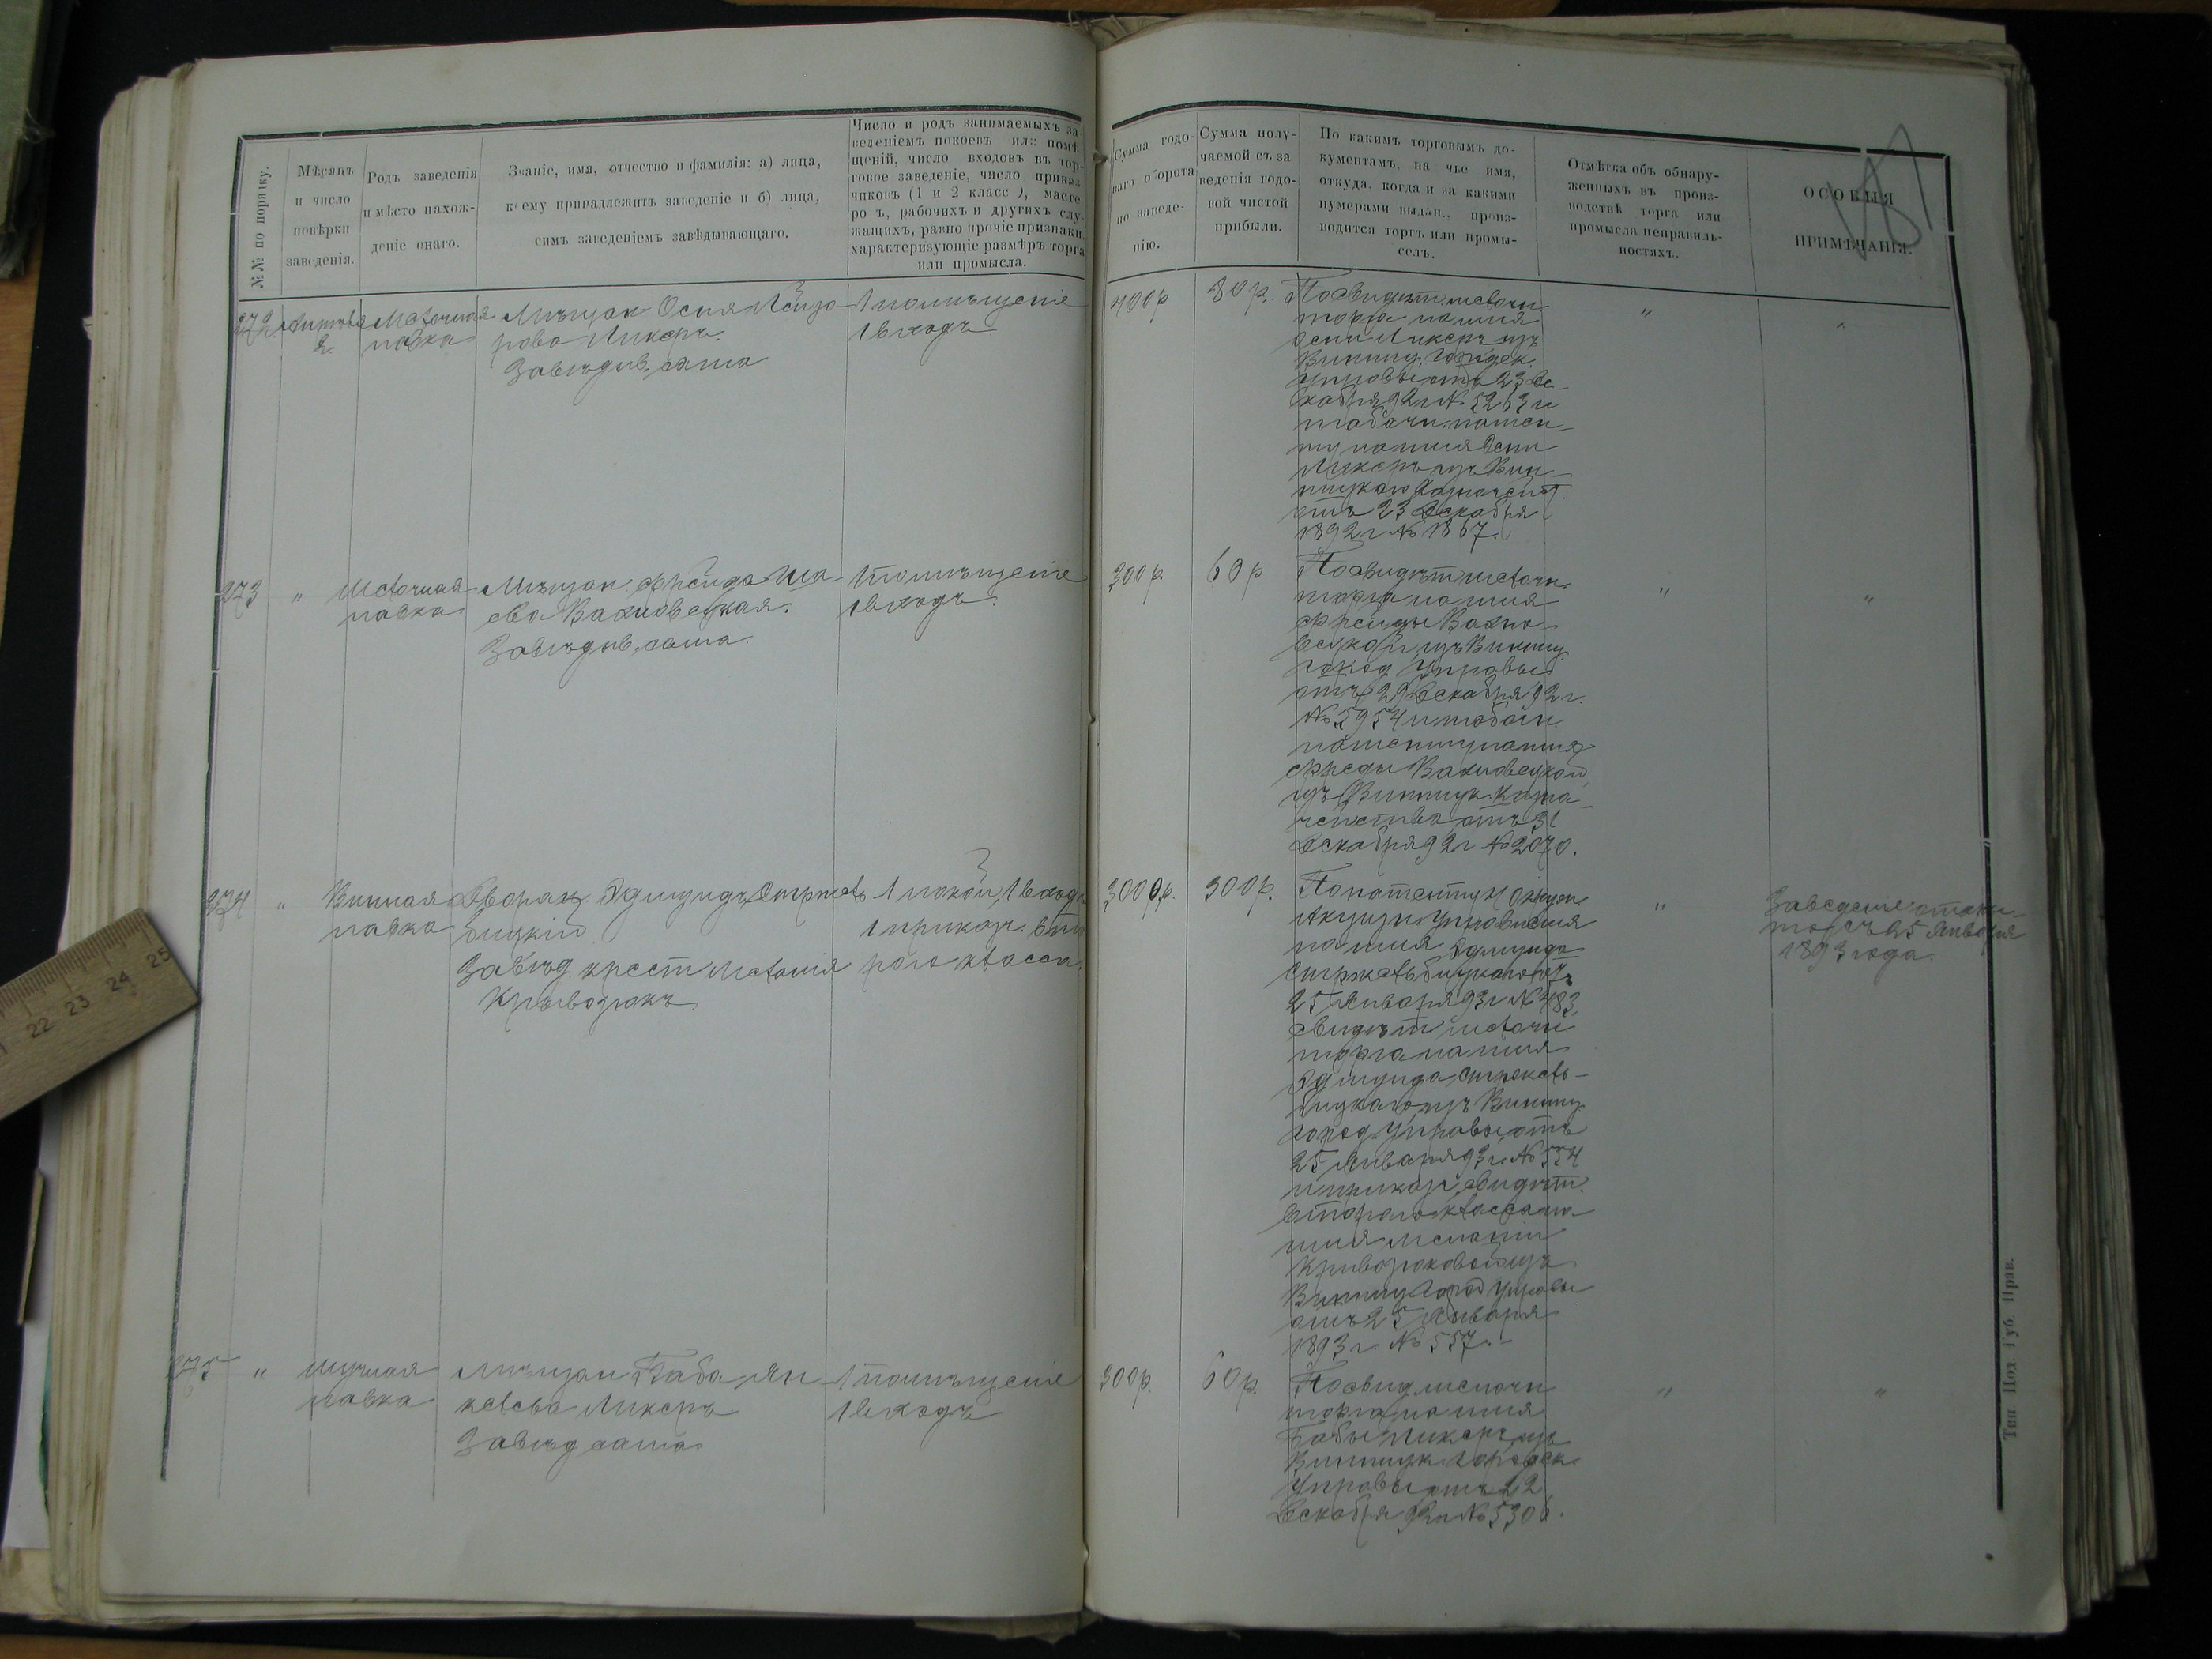 №№ по порядку.
Мѣсяцъ
и число
повѣрки
заведенія.
Родъ заведенія
и мѣсто нахож-
деніе онаго.
Званіе, имя, отчество и фамилія: а) лица,
коему принадлежитъ заведеніе и б) лица,
симъ заведеніемъ завѣдывающаго.
Число и родъ занимаемыхъ за-
веденіемъ покоевъ или помѣ-
щеній, число входовъ въ тор-
говое заведеніе, число приказ-
чиковъ (1 и 2 класс), масте-
ровъ, рабочихъ и другихъ слу-
жащихъ, равно прочіе признаки,
характеризующіе размѣръ торга
или промысла.
Сумма годо-
ваго оборота
по заведе-
нію.
Сумма полу-
чаемой съ за-
веденія годо-
вой чистой
прибыли.
По какимъ торговымъ до-
кументамъ, на чье имя,
откуда, когда и за какими
нумерами выдан., произ-
водится торгъ или промы-
селъ.
Отмѣтка объ обнару-
женныхъ въ произ-
водствѣ торга или
промысла неправиль-
ностяхъ.
ОСОБЫЯ
ПРИМѢЧАНІЯ.
272
2
Мелочная
лавка
Мѣщан Осня
Ликеръ.
Завѣдыв. сама
1 помѣщеніе
1 входъ.
400 р
80 р.
По свидѣт. мелочн.
торга на имя
Осни Ликеръ изъ
Винниц. Городск.
Управы отъ 23 Де-
кабря 92 г № 5263 и
табачн. патен-
ту на имя Осни
Ликеръ изъ Вин-
ницкаго Казначейст.
отъ 23 Декабря
1892 г № 1867.
"
"
273
"
Мелочная
лавка
Мѣщан. Фрейда
Вахновецкая.
Завѣдыв. сама.
1 помѣщеніе
1 входъ.
300 р.
60 р
По свидѣт мелочн.
торга на имя
Фрейды Вахно-
вецкой изъ Винниц
город Управы
отъ 29 Декабря 92 г.
№ 5954 и табачн
патенту на имя
Фреды Вахновецкой
изъ Винницк. Казна-
чейства отъ 31
Декабря 92 г № 2070.
"
"
274
"
Винная
лавка
Дворян. Эдмундъ Стржель
бицкій
Завѣд. крест Меланія
Криворюкъ.
1 покой, 1 входъ
1 приказч. вто
рого класса.
3000 р.
300 р.
По патенту
Акцизн. Управленія
на имя Эдмунда
Стржельбицкаго отъ
25 Января 93 г № 483,
свидѣт мелочн
торга на имя
Эдмунда Стржель-
бицкаго изъ Винниц
город Управы отъ
25 Января 93 г. № 554
и приказ. свидѣт.
второго класса на
имя Меланіи
изъ
Винниц Город Управы
отъ 25 Января
1893 г. № 557.-
"
Заведеніе
съ 25 Января
1893 года.
275
"
Мучная
лавка
Мѣщан Баба Ян-
келева Ликеръ
Завѣд сама
1 помѣщеніе
1 входъ
300 р.
60 р.
По свид мелочн
торга на имя
Бабы Ликеръ изъ
Винницк. Городск.
Управы отъ 22
Декабря 92 г № 5306.
"
"
Тип. Под. Губ. Прав.
22 23 24 25